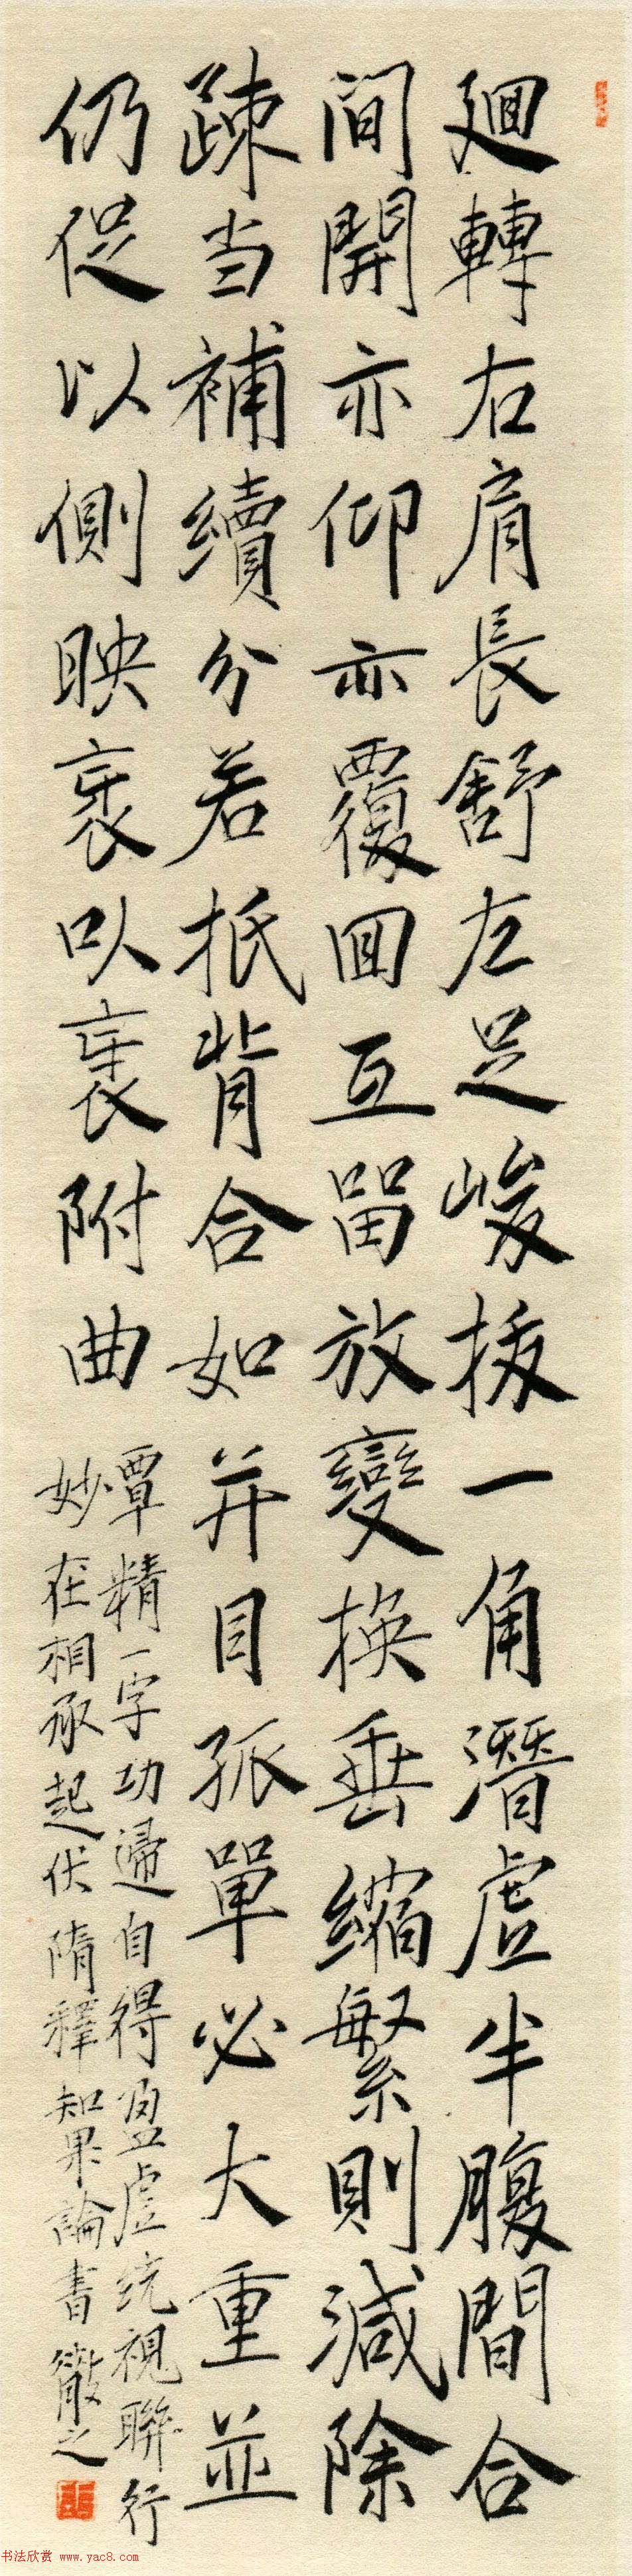 廻轉右肩長舒左足峻拔一角潛虛半腹間合
間開亦仰亦覆回互留放變換垂縮繁則減除
疎当補續分若抵背合如并目孤單必大重並
仍促以側映衺以衺附曲
覃精一字功歸自得盈虛統視聯行
妙在相承起伏隋釋智果論書徹之
书法欣赏 www.yac8.com